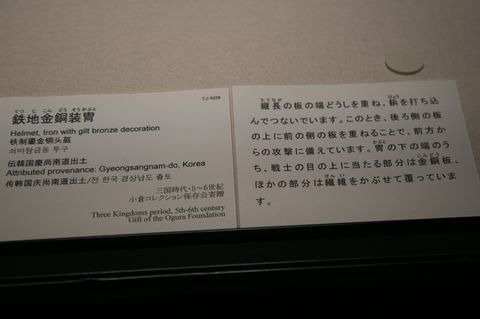 てつ じ こん どう そうかぶと
鉄地金銅装冑
TJ-5028
Helmet, Iron with gilt bronze decoration
铁制鎏金铜头盔
쇠바탕금동 투구
伝韓国慶尚南道出土
Attributed provenance: Gyeongsangnam-do, Korea
传韩国庆尚南道出土/전 한국 경상남도 출토
三国時代・5～6世紀
小倉コレクション保存会寄贈
Three Kingdoms period, 5th-6th century
Gift of the Ogura Foundation
たてなが びょう
縦長の板の端どうしを重ね、鋲を打ち込
んでつないでいます。このとき、後ろ側の板
の上に前の側の板を重ねることで、前方か
らの攻撃に備えています。冑の下の端のう
ち、戦士の目の上に当たる部分は金銅板、
ほかの部分は繊維をかぶせて覆っていま
す。